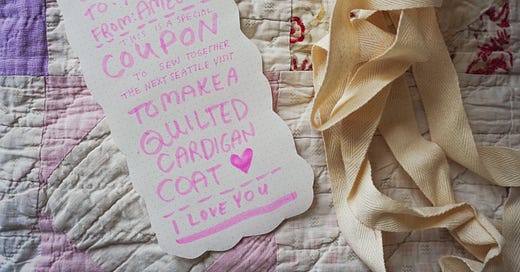 TO:
FROM: AMBE
THIS IS A SPECIAL
COUPON
TO SEW TOGETHER
THE NEXT SEATTLE VISIT
TO MAKE A
QUILTED
CARDIGAN
COAT ♥
I LOVE YOU